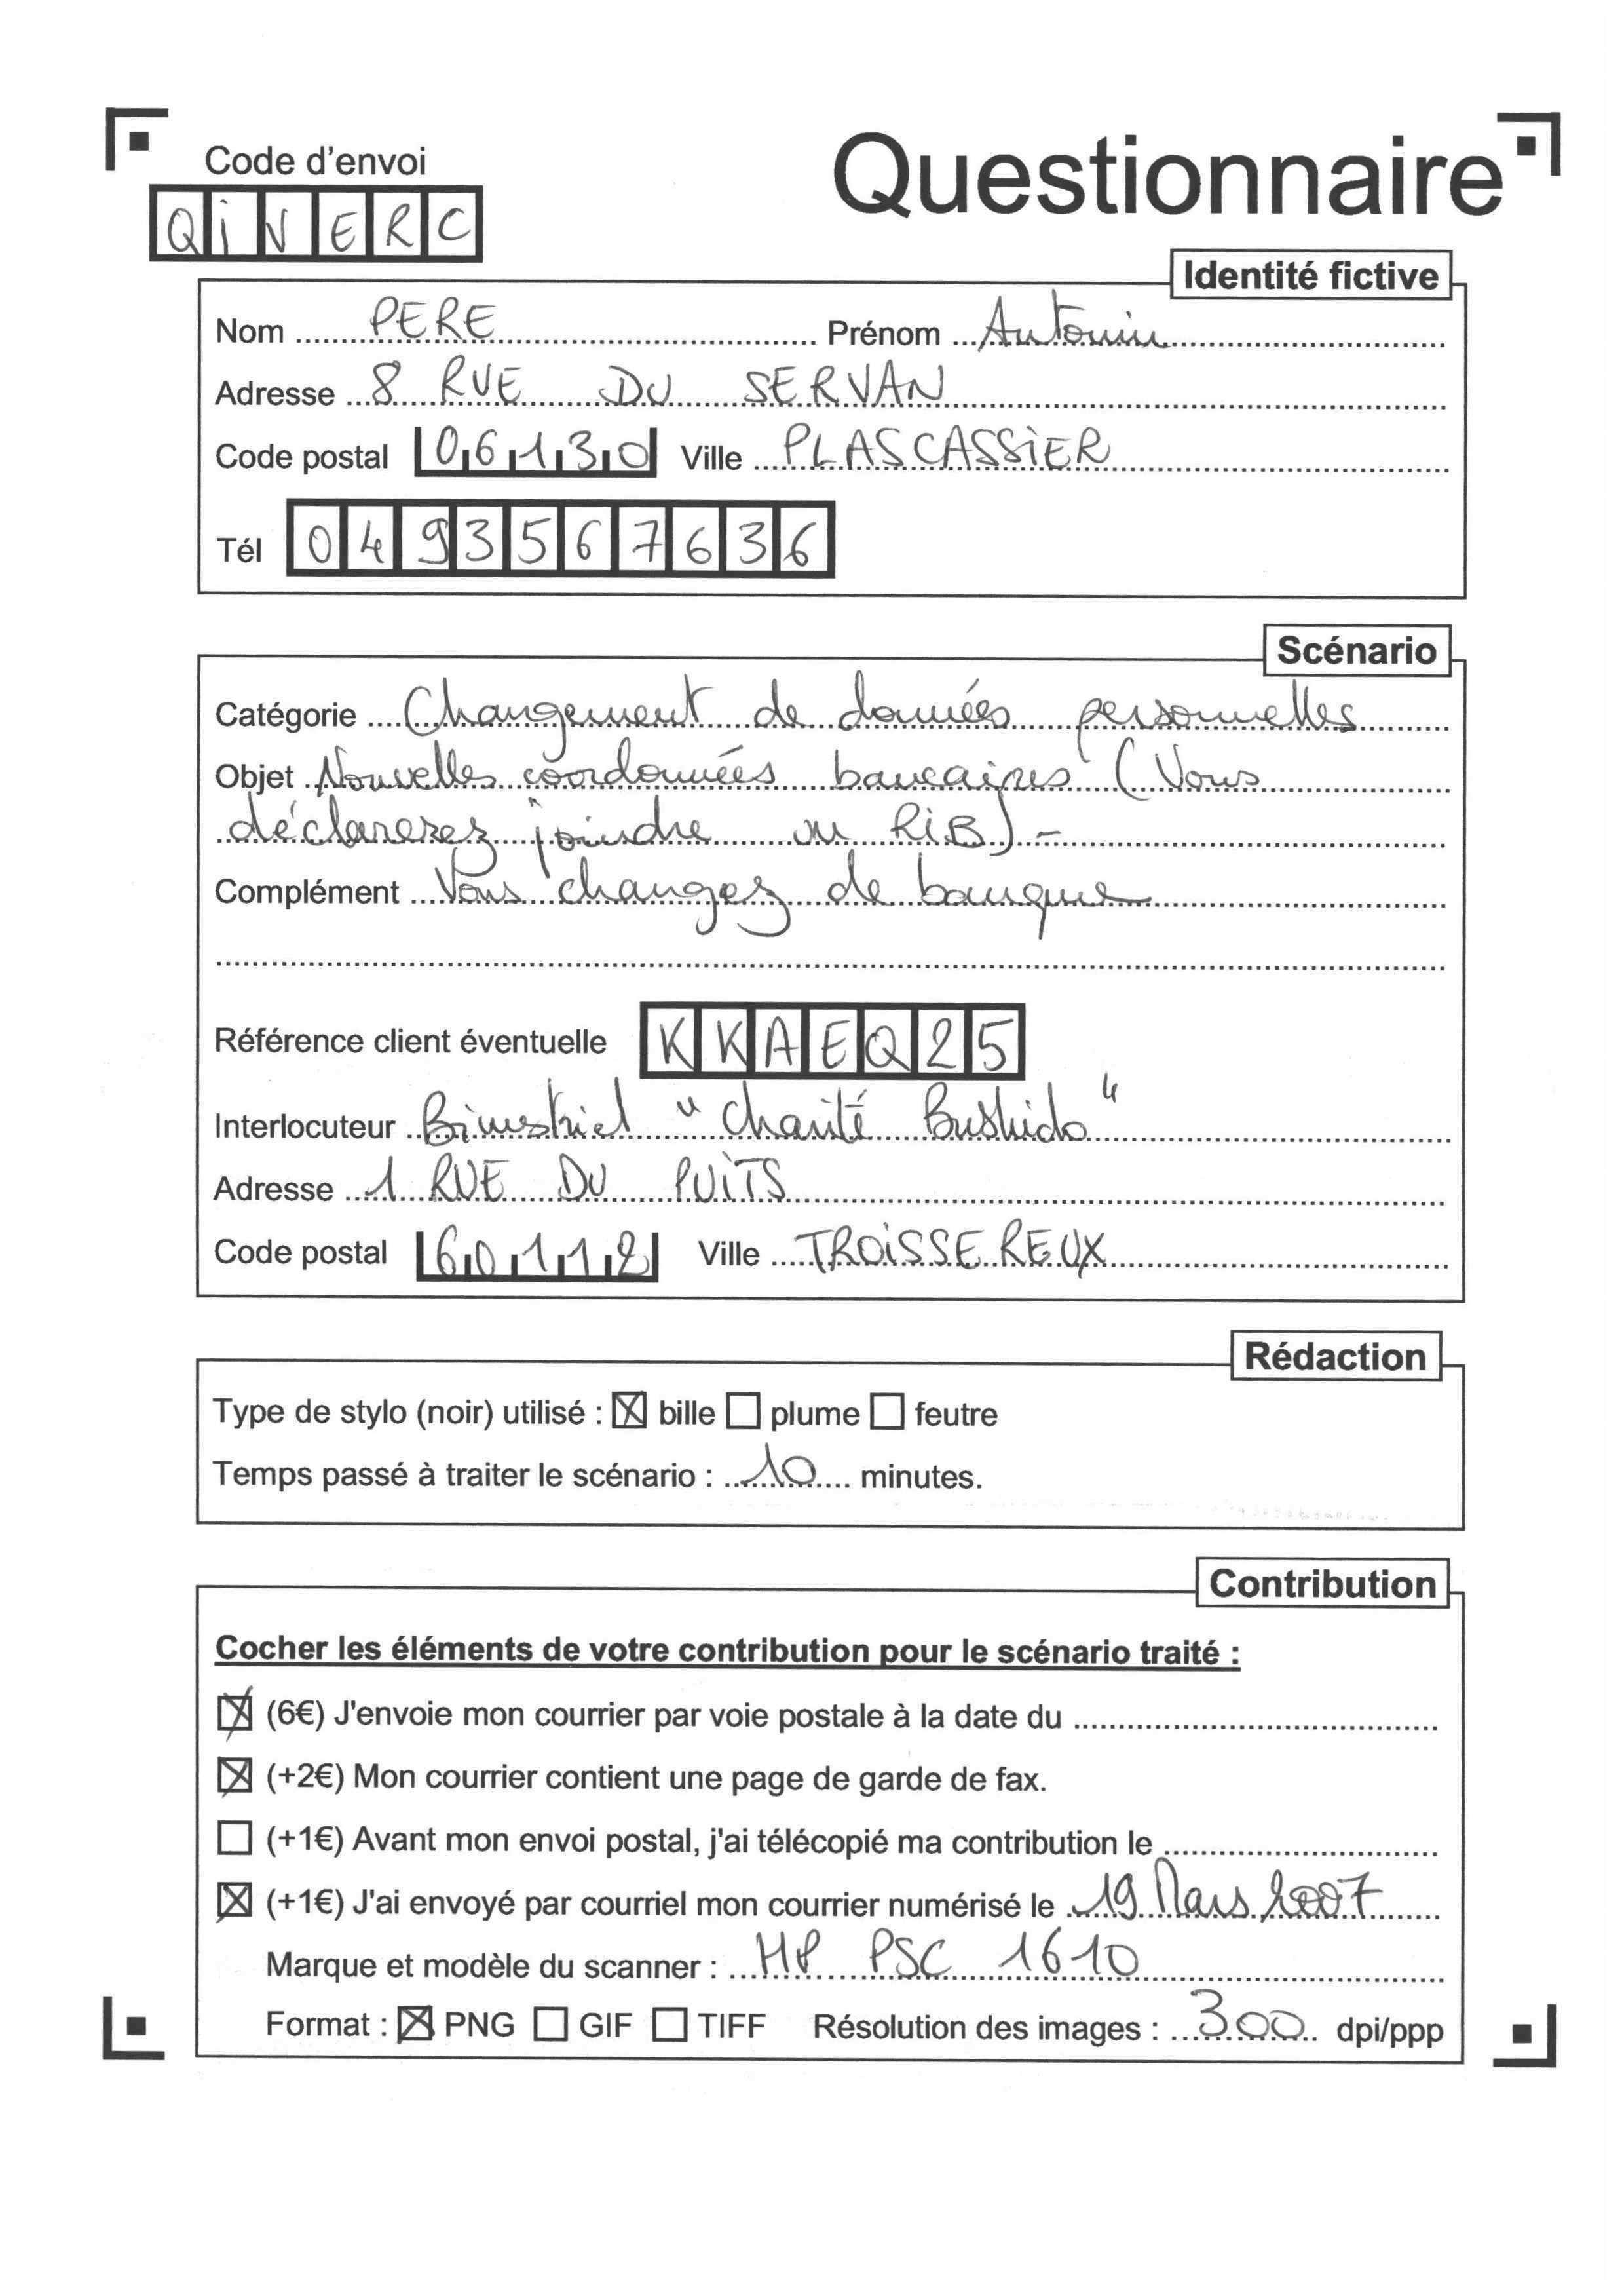 Code d'envoi
Questionnaire
QiNERC
Identité fictive
Nom PERE Prénom Antonin
Adresse 8 RUE DU SERVAN
Code postal 06130 Ville PLASCASSiER
Tél 0493567636
Scénario
Catégorie Changement de données personnelles
Objet Nouvelles coordonnées bancaires (Vous
déclarerez joindre un RiB) -
Complément Vous changez de banque
Référence client éventuelle KKAEQ25
Interlocuteur Bimestriel " Charité Bushido "
Adresse 1 RUE DU PUiTS
Code postal 60112 Ville TROiSSEREUX
Rédaction
Type de stylo (noir) utilisé : ☒ bille ☐ plume ☐ feutre
Temps passé à traiter le scénario : 10 minutes.
Contribution
Cocher les éléments de votre contribution pour le scénario traité :
☒ (6€) J'envoie mon courrier par voie postale à la date du
☒ (+2€) Mon courrier contient une page de garde de fax.
☐ (+1€) Avant mon envoi postal, j'ai télécopié ma contribution le
☒ (+1€) J'ai envoyé par courriel mon courrier numérisé le 19 Mars 2007
Marque et modèle du scanner : HP PSC 1610
Format : ☒ PNG ☐ GIF ☐ TIFF Résolution des images : 300 dpi/ppp